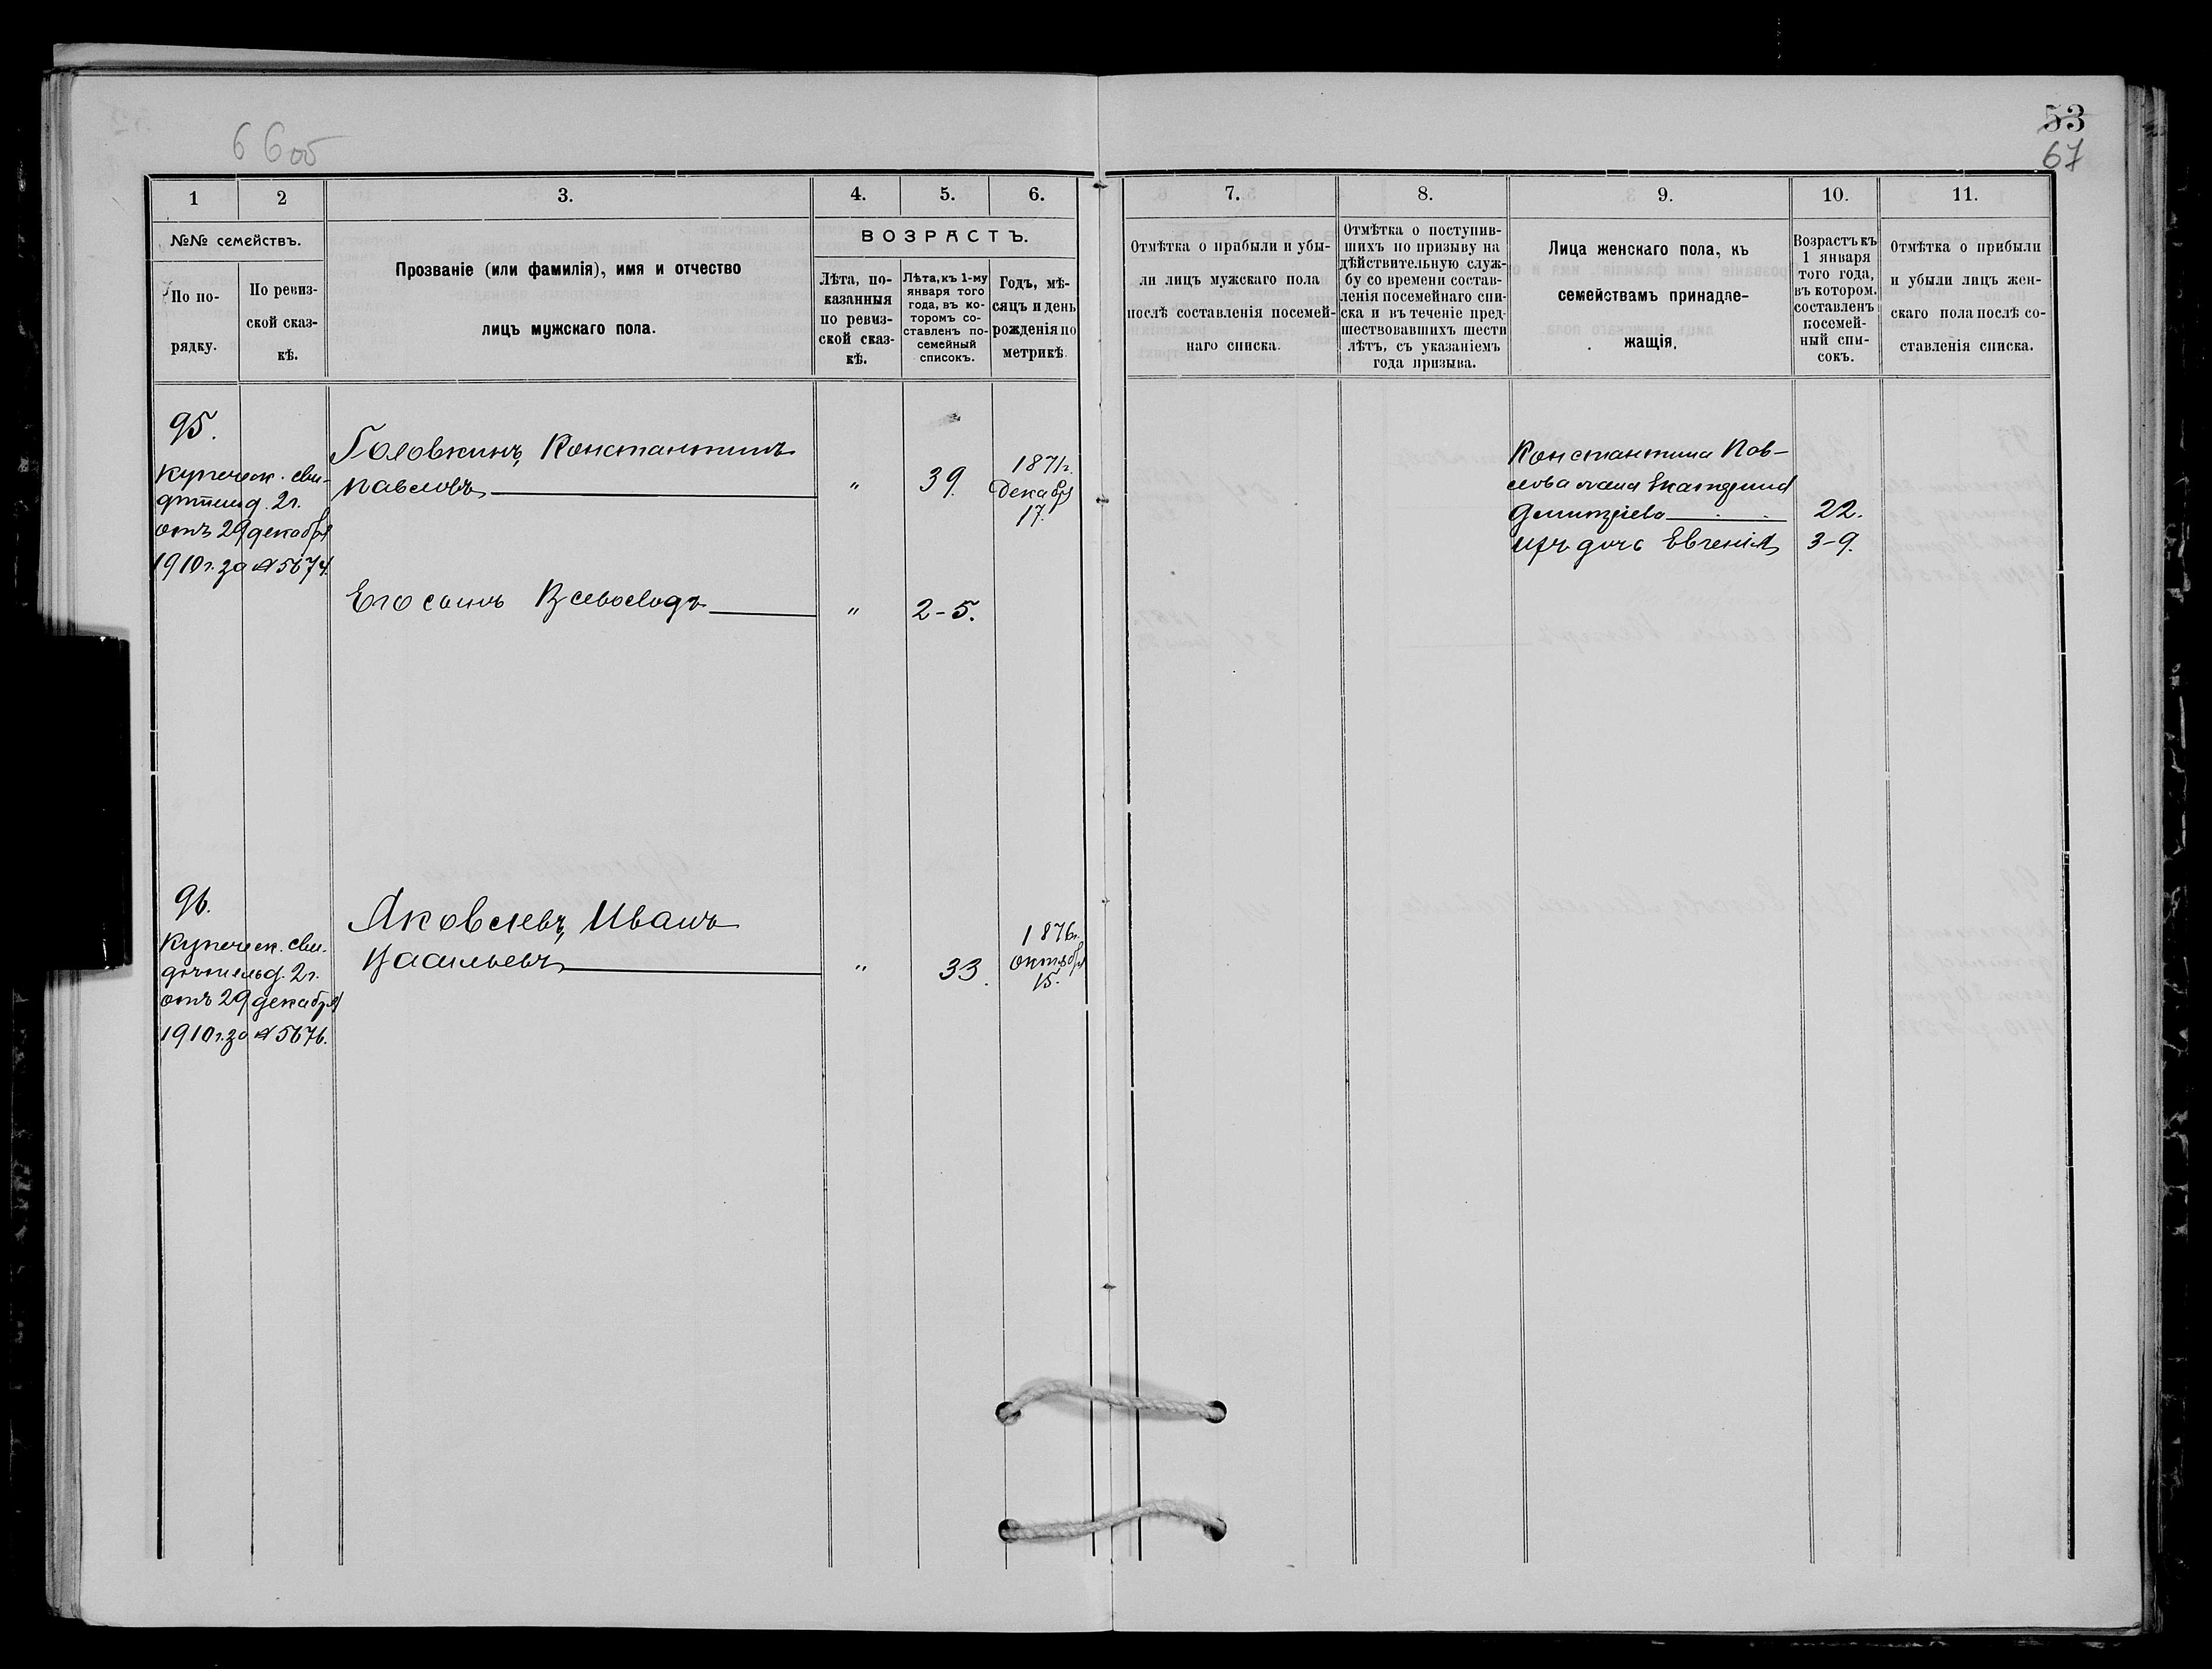 66об
53
67
1
2
3.
4.
5.
6.
7.
8.
9.
10.
11.
№№ семействъ.
По по-
рядку.
По ревиз-
ской сказ-
кѣ.
Прозваніе (или фамилія), имя и отчество
лицъ мужскаго пола.
ВОЗРАСТЪ.
Лѣта, по-
казанныя
по ревиз-
ской сказ-
кѣ.
Лѣта, къ 1-му
января того
года, въ ко-
торомъ со-
ставленъ по-
семейный
списокъ.
Годъ, мѣ-
сяцъ и день
рожденія по
метрикѣ.
Отмѣтка о прибыли и убы-
ли лицъ мужского пола
послѣ составленія посемей-
наго списка.
Отмѣтка о поступив-
шихъ по призыву на
дѣйствительную служ-
бу со времени состав-
ленія посемейнаго спи-
ска и въ теченіе пред-
шествовавшихъ шести
лѣтъ, съ указаніемъ
года призыва.
Лица женскаго пола, къ
семействамъ принадле-
жащія.
Возрастъ къ
1 января
того года,
въ котором.
составленъ
посемей-
ный спи-
сокъ.
Отмѣтка о прибыли
и убыли лицъ жен-
скаго пола послѣ со-
ставленія списка.
95.
Купеческ. сви-
2г.
отъ 29 декабря
1910г. за № 5674.
Головкинъ, Константинъ
Павловъ
"
39.
1871г.
Декабря
17.
Константина Пав-
лова жена Екатерина
Дмитріева
22.
ихъ дочь Евгенія
3-9.
Его сынъ Всеволодъ
"
2-5.
96.
Купеческ. сви-
2г.
отъ 29 декабря
1910г. за № 5676.
Яковлевъ, Иванъ
Васильевъ
"
33.
1876г.
октября
15.